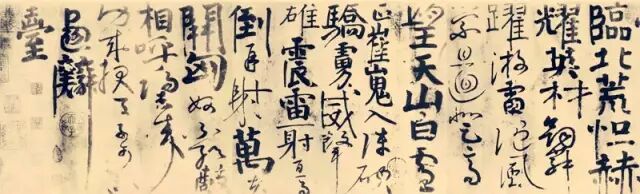 臨北荒恒赫
耀英材劍舞
躍游雷隨風
縈且迴登高
望天山白雪
正崔嵬入陣破
驕虜威聲
雄震雷一射百馬
倒再射萬夫
開匈奴不敢敵
相呼歸去來
功成報天子可
畫麟
臺